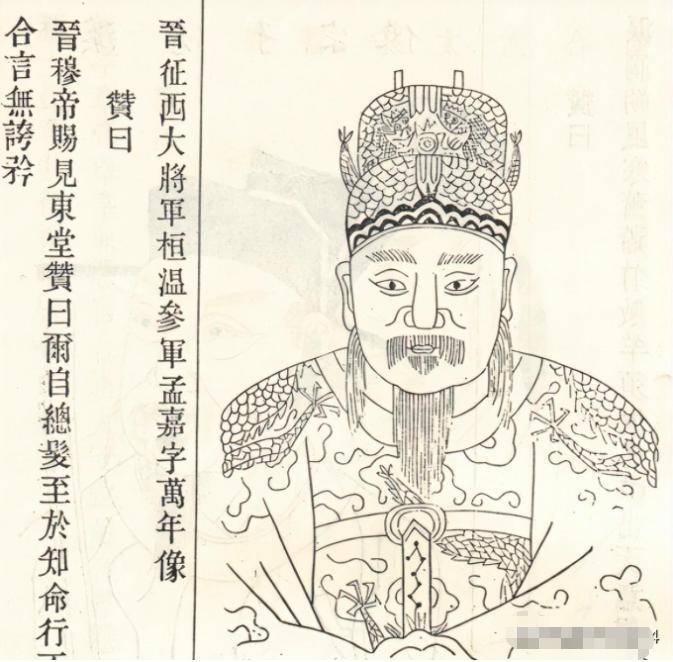 晉征西大將軍桓温參軍孟嘉字萬年像
贊曰
晉穆帝賜見東堂贊曰爾自總髮至於知命行不
合言無誇矜